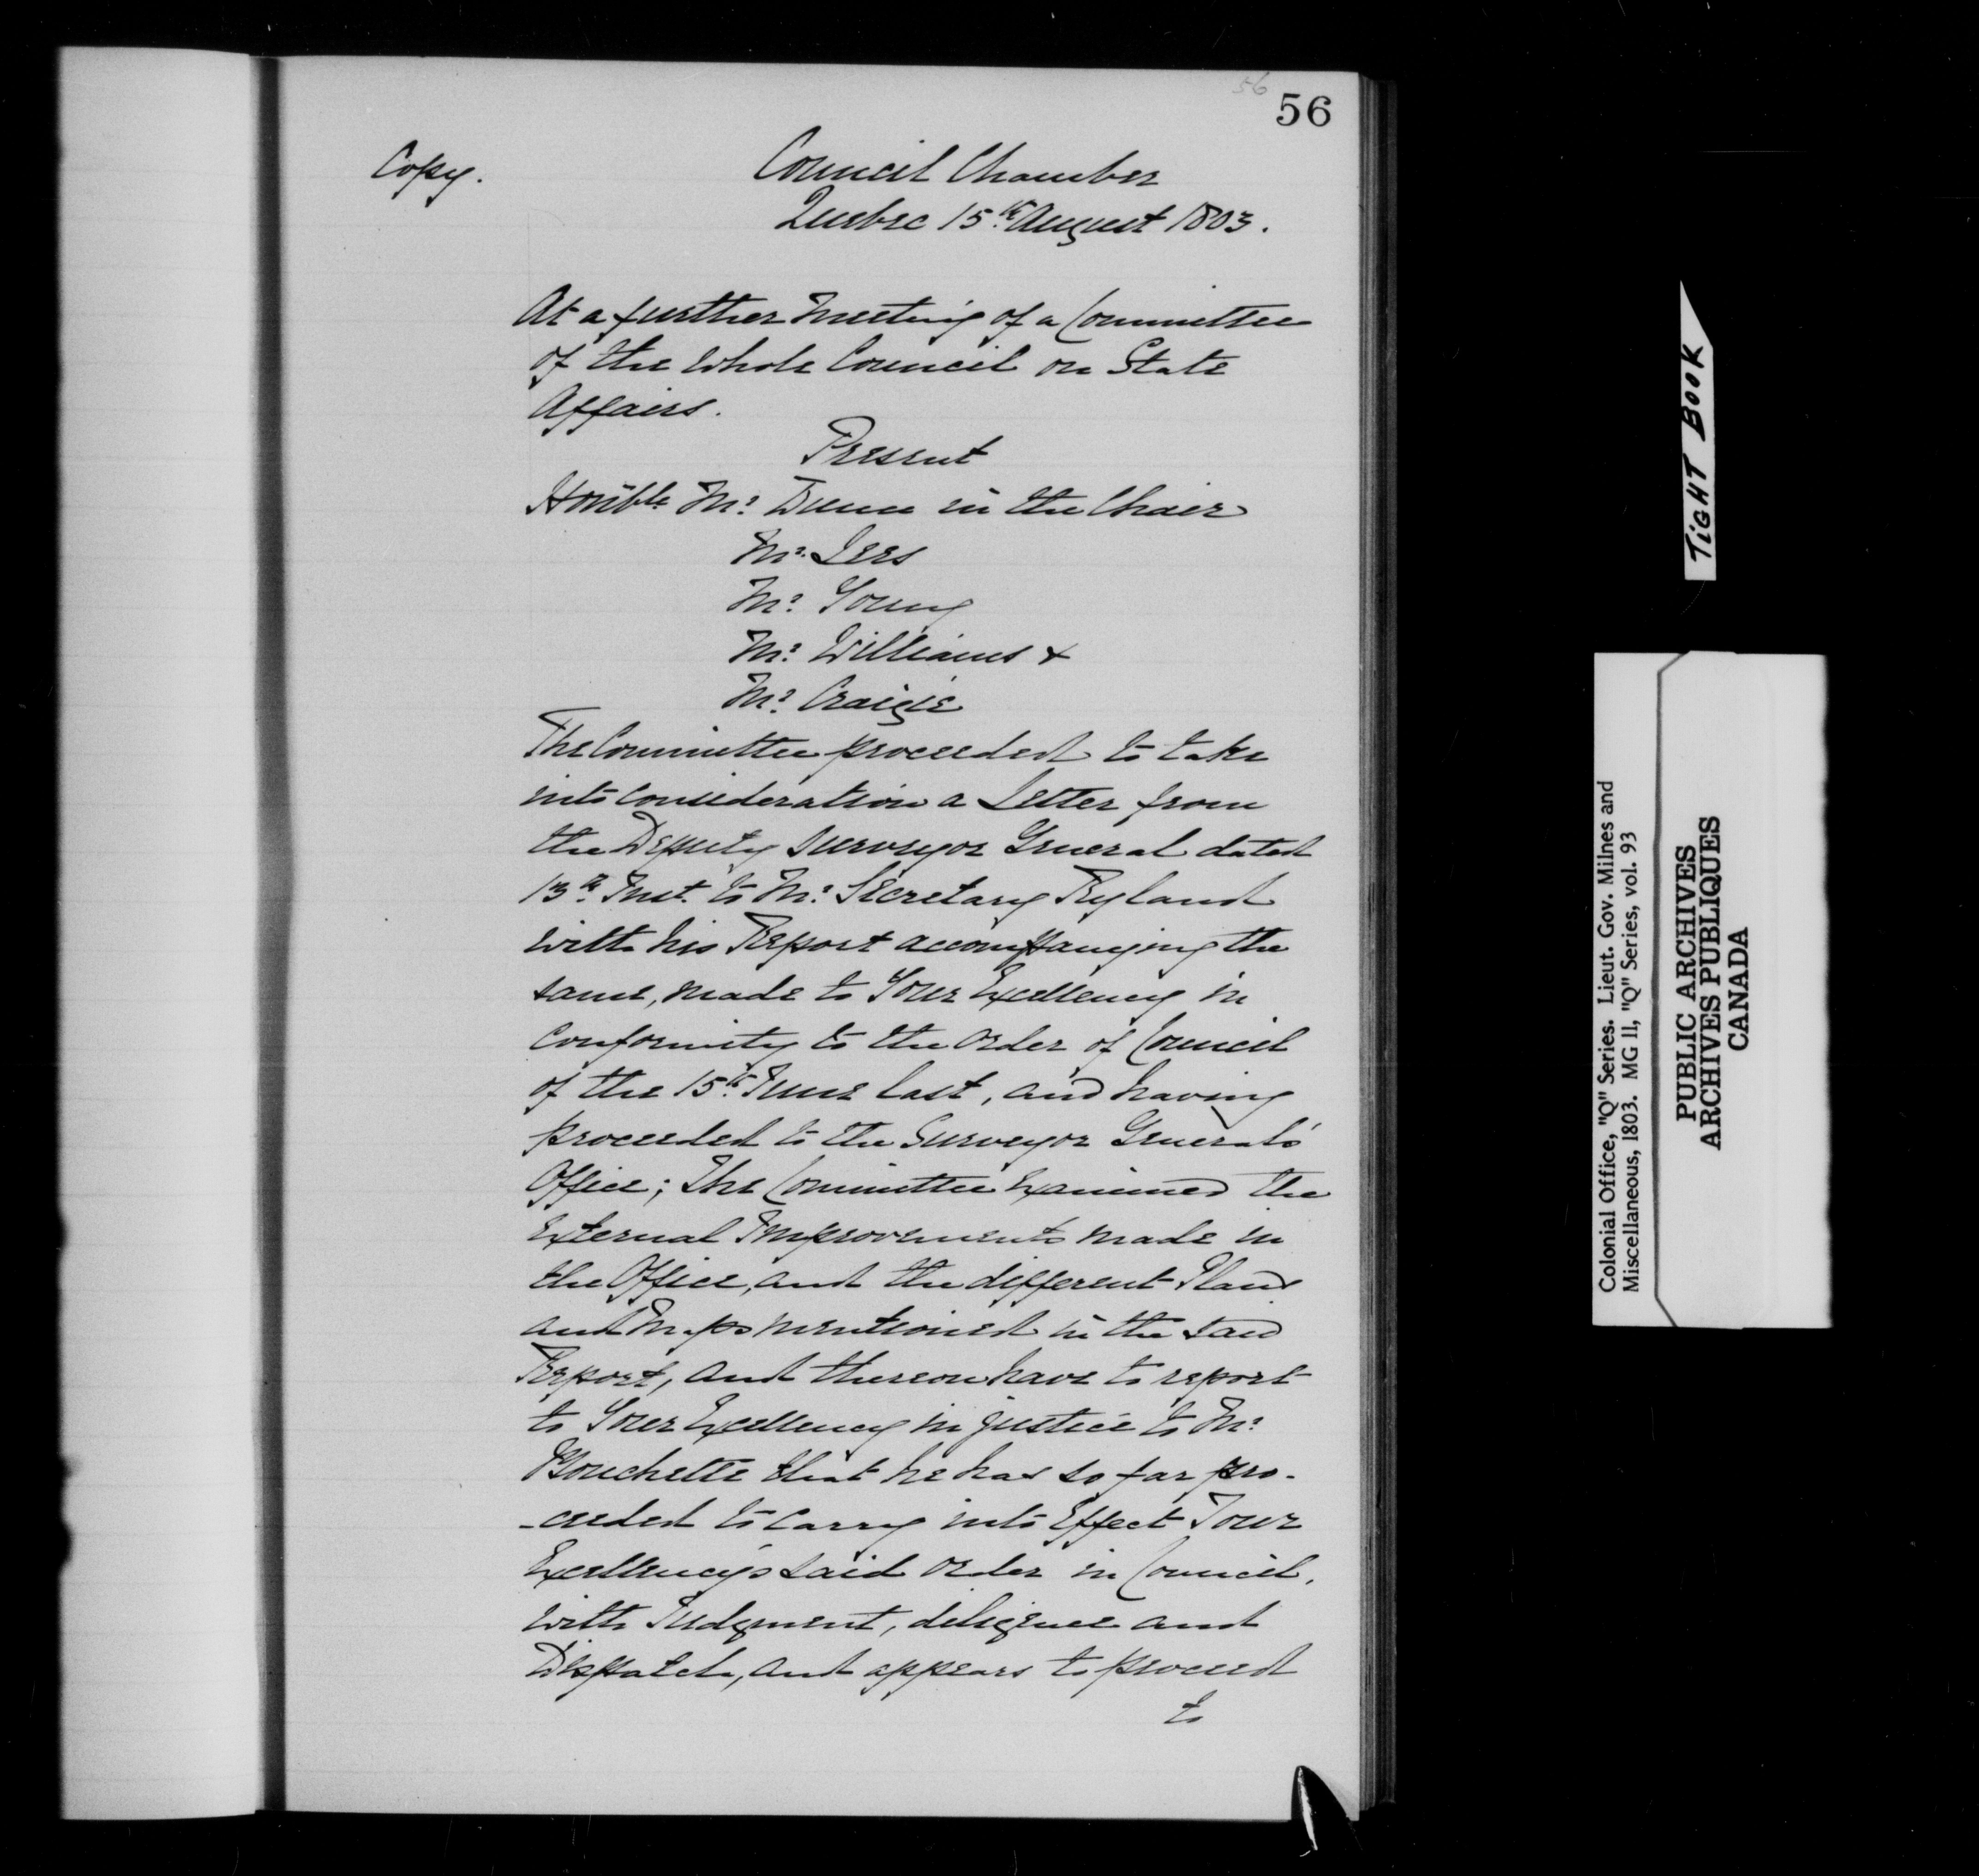 56
56
Copy.
Council Chamber
Quebec 15th August 1803.
At a further Meeting of a Committee
of the Whole Council on State
Affairs.
Present
Honble Mr. Dunn in the Chair
Mr. Lees
Mr. Young
Mr. Williams &
Mr. Craigie
The Committee proceeded to take
into consideration a Letter from
the Deputy Surveyor General dated
13th Inst. to Mr. Secretary Ryland
with his Report accompanying the
same, made to Your Excellency in
conformity to the order of Council
of the 15th June last, and having
proceeded to the Surveyor General's
Office; The Committee Examined the
External Improvements made in
the Office, and the different Plans
and Maps mentioned in the said
Report, and thereon have to report
to Your Excellency in justice to Mr.
Bouchette that he has so far pro-
-ceeded to carry into Effect Your
Excellency's said order in Council,
with Judgment, diligence and
Dispatch, and appears to proceed
to
TIGHT BOOK
Colonial Office, "Q" Series. Lieut. Gov. Milnes and
Miscellaneous, 1803. MG 11, "Q" Series, vol. 93
PUBLIC ARCHIVES
ARCHIVES PUBLIQUES
CANADA